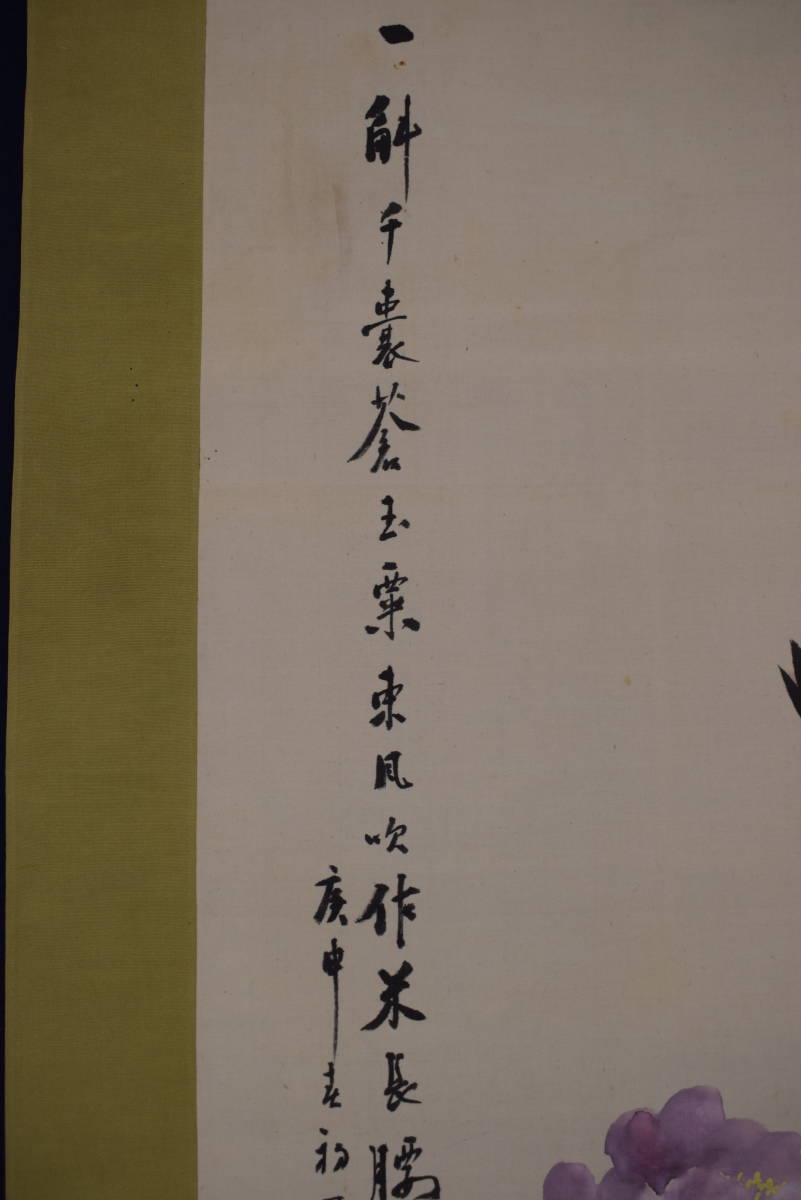 一斛千囊蒼玉粟東風吹作米長腰
庚申春初